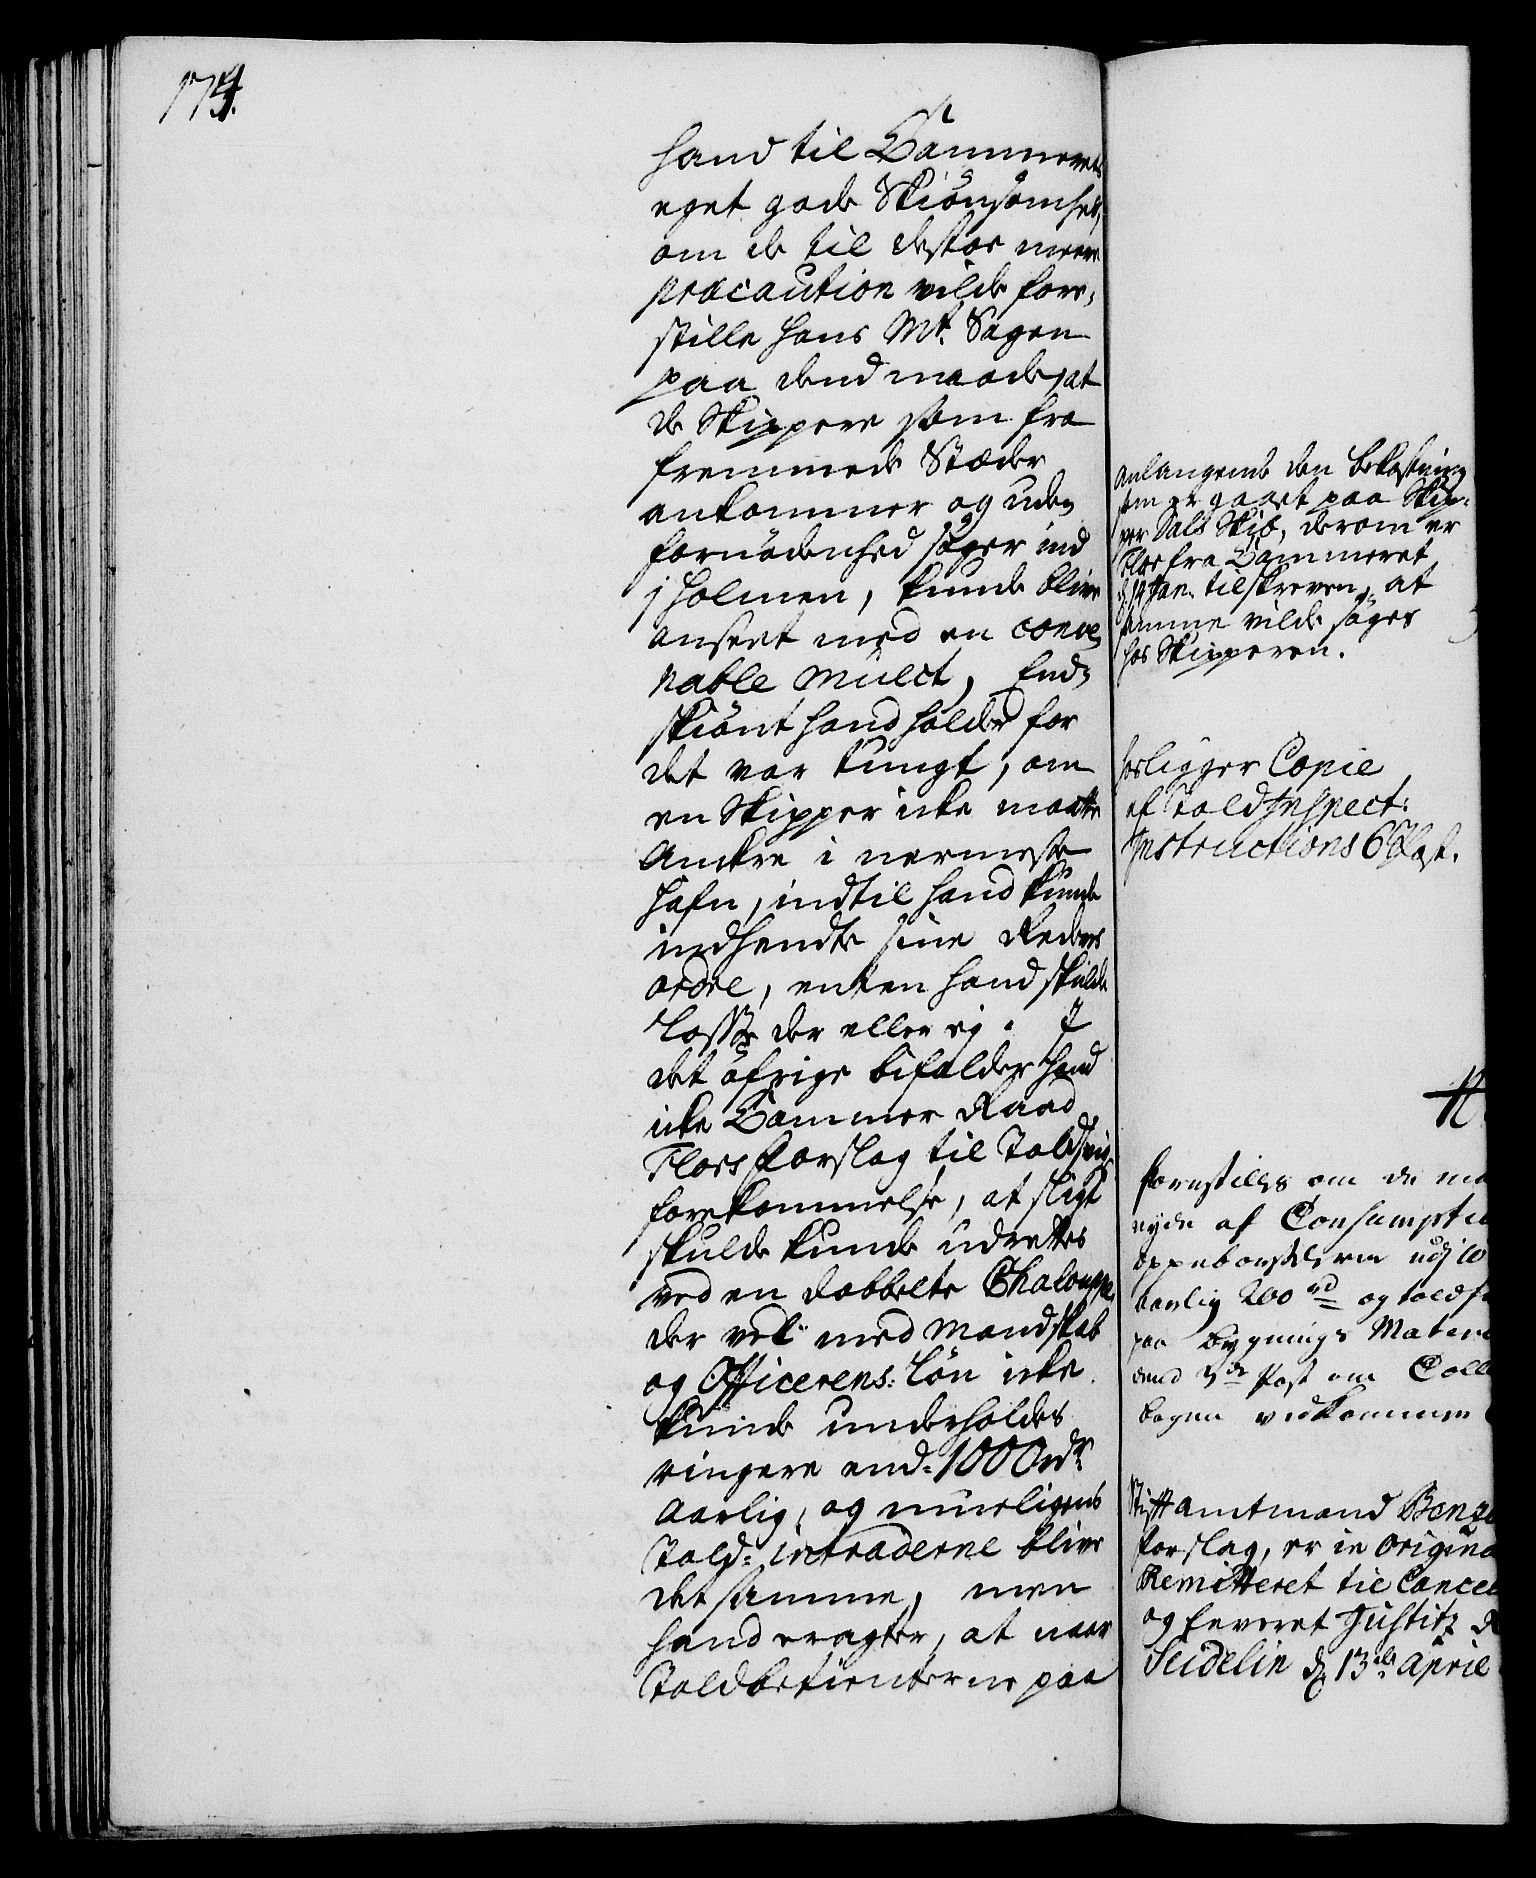 174.
hand til Cammerets
eget gode Skiönsomhed,
om de til destoe meere
præcaution vilde fore,
stille Hans Mt. Sagen
paa dend maade, at
de Skippere som fra
fremmede Stæder
ankommer og uden
fornödenhed söger ind
j Holmen, kunde blive
anseet med en conve,
nable mulct, End,
skiönt hand holder for
det var tungt, om
en Skipper icke maatte
Anckre i nermeste
Hafn, indtil hand kunde
indhendte sine Reders
ordre, enten hand skulde
Losse der eller ej. I
det öfrige bifalder hand
icke Cammer Raad
Floers forslag til Toldsvig
forekommelse, at sligt
skulde kunde udrettes
ved en dobbelte Chalouppe,
der vel med Mandskab
og Officerens Lön icke
kunde underholdes
ringere end 1000 rdr
Aarlig, og mueligens
Told-intraderne blive
det samme, men
hand eragter, at naar
Toldbetienterne paa
anlangende den bekostning
som er gaaet paa Skip-
per Dals Skib, derom er
Floer fra Cammeret
d. 14 Jan. tilskreven, at
samme vilde söges
hos Skipperen.
hosligger Copie
af Told Inspect:
Instructions 6 Post.
forestilles om de
nyde af Consumptio
oppebörselen
aarlig 200 rd og told
paa bygnings Mater
dend 3de Post om Coll
bogen vedkommen
Stiftamtmand Benze
forslag, er in Origina
Remitteret til Cancel
og leveret Justitz
Seidelin d. 13de April